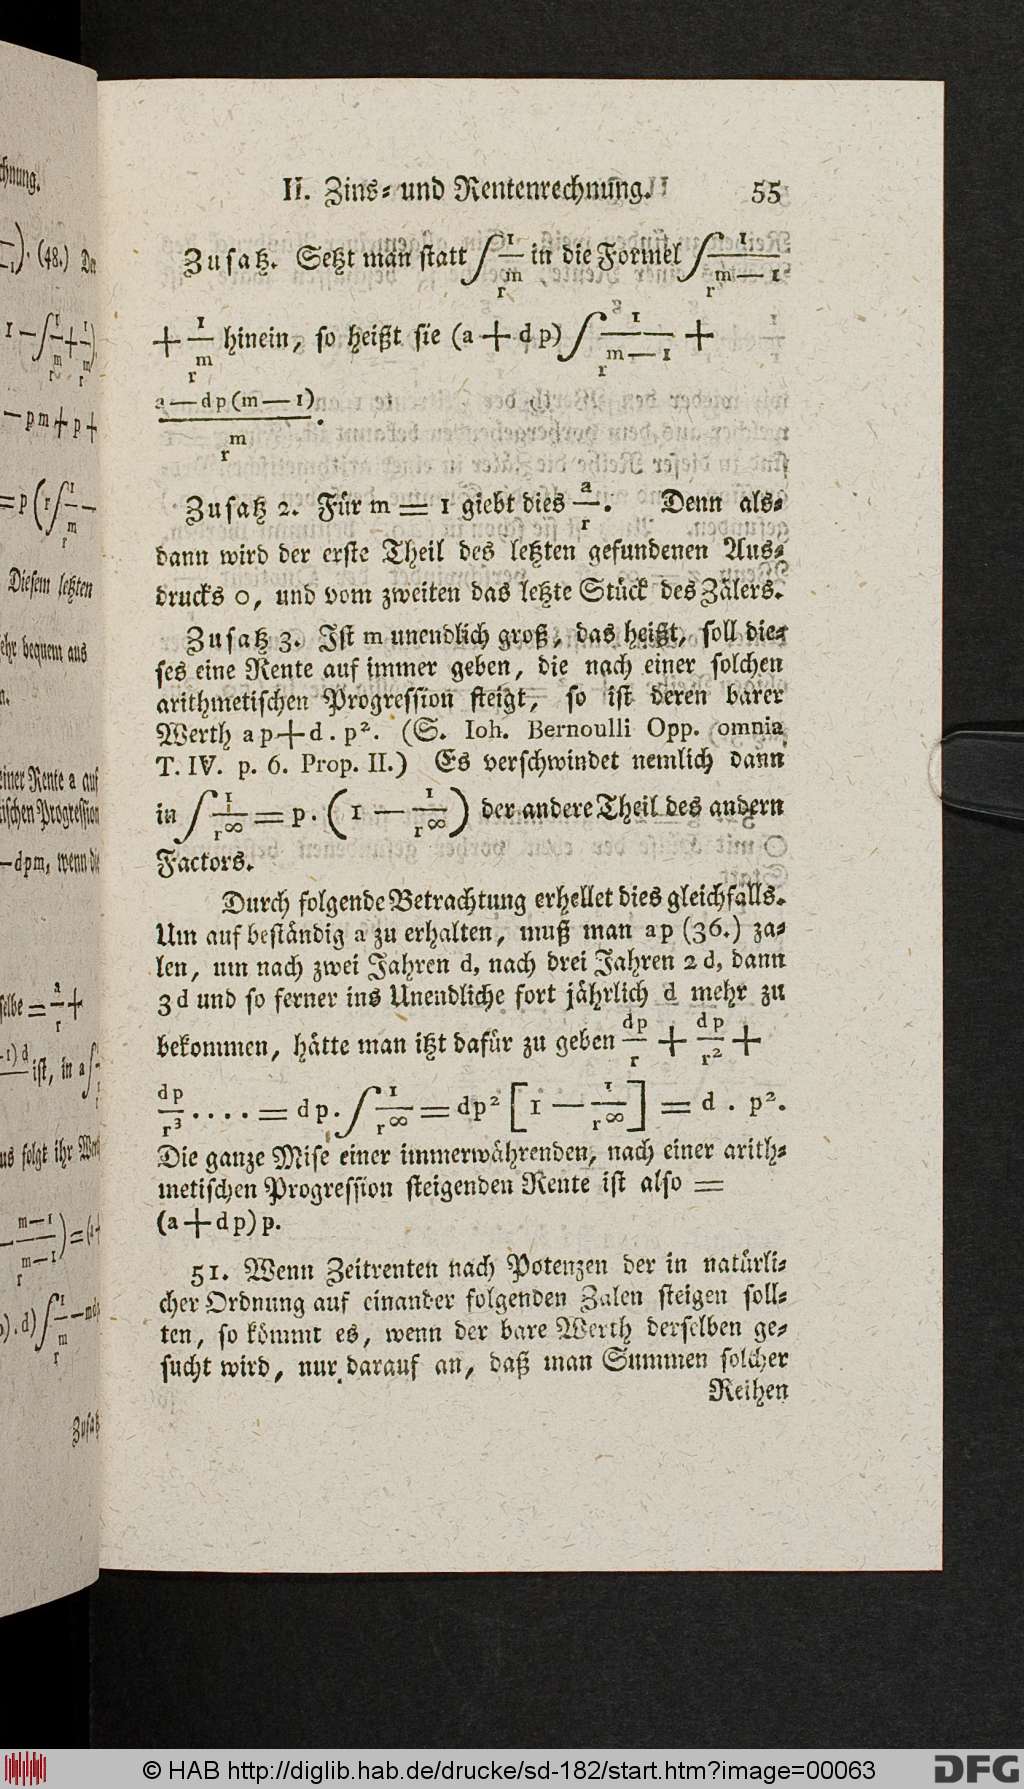 II. Zins- und Rentenrechnung. 55
Zusatz. Setzt man statt ∫ 1/r^m in die Formel ∫ 1/r^(m—1)
+ 1/r^m hinein, so heißt sie (a + dp) ∫ 1/r^(m—1) +
a — dp (m — 1)/r^m.
Zusatz 2. Für m = 1 giebt dies a/r. Denn als-
dann wird der erste Theil des letzten gefundenen Aus-
drucks 0, und vom zweiten das letzte Stück des Zälers.
Zusatz 3. Ist m unendlich groß, das heißt, soll die-
ses eine Rente auf immer geben, die nach einer solchen
arithmetischen Progression steigt, so ist deren barer
Werth ap + d . p². (S. Ioh. Bernoulli Opp. omnia
T. IV. p. 6. Prop. II.) Es verschwindet nemlich dann
in ∫ 1/r^∞ = p . (1 — 1/r^∞) der andere Theil des andern
Factors.
Durch folgende Betrachtung erhellet dies gleichfalls.
Um auf beständig a zu erhalten, muß man ap (36.) za-
len, um nach zwei Jahren d, nach drei Jahren 2 d, dann
3 d und so ferner ins Unendliche fort jährlich d mehr zu
bekommen, hätte man itzt dafür zu geben dp/r + dp/r² +
dp/r³ .... = dp . ∫ 1/r^∞ = dp² [1 — 1/r^∞] = d . p².
Die ganze Mise einer immerwährenden, nach einer arith-
metischen Progression steigenden Rente ist also =
(a + dp) p.
51. Wenn Zeitrenten nach Potenzen der in natürli-
cher Ordnung auf einander folgenden Zalen steigen soll-
ten, so kömmt es, wenn der bare Werth derselben ge-
sucht wird, nur darauf an, daß man Summen solcher
Reihen
© HAB http://diglib.hab.de/drucke/sd-182/start.htm?image=00063
DFG